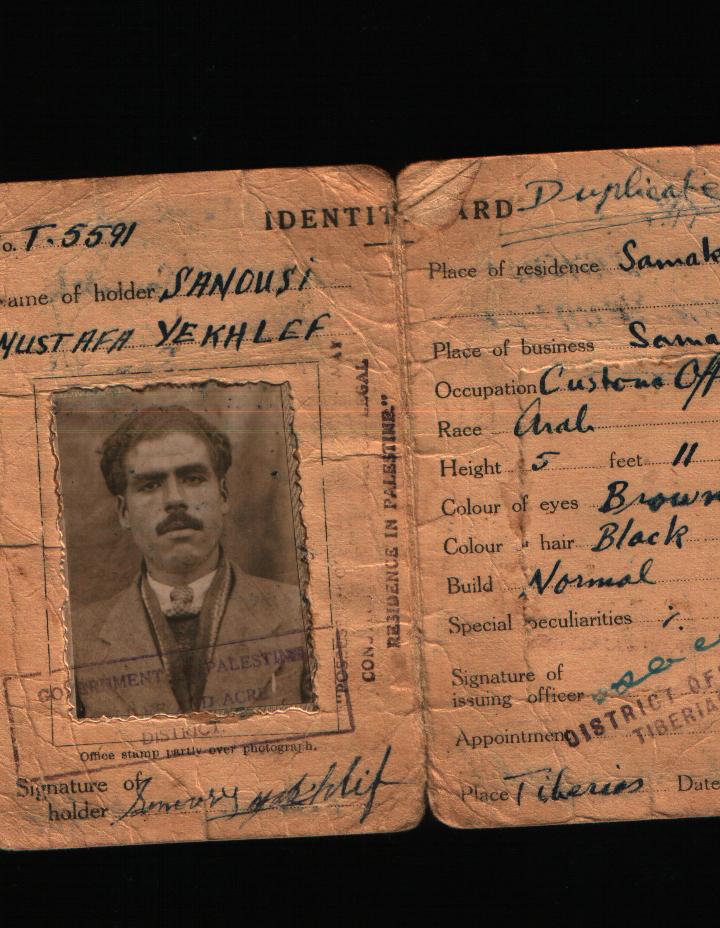 No. T.5591
IDENTIT ARD Duplicate
ame of holder SANOUSI
MUSTAFA YEKHLEF
LEGAL
RESIDENCE IN PALESTINE."
GOVERNMENT OF PALESTINE
AND ACRE
DISTRICT.
Office stamp partly over photograph.
Signature of
holder
Place of residence Samak
Place of business Sama
Occupation Customs Off
Race Arab
Height 5 feet 11
Colour of eyes Brown
Colour „ hair Black
Build Normal
Special peculiarities
Signature of
issuing officer
Appointment
DISTRICT OF
TIBERIA
Place Tiberias Date